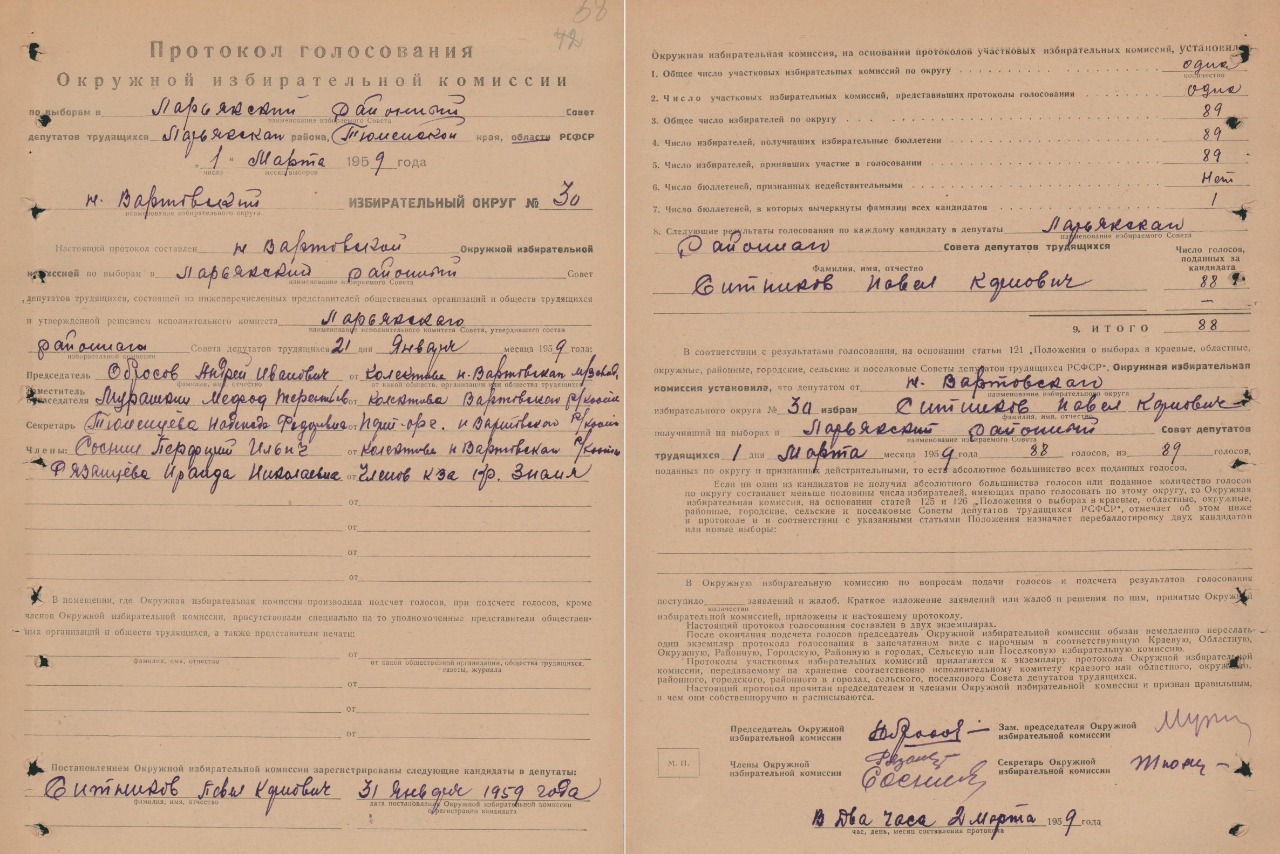 58
42
Протокол голосования
Окружной избирательной комиссии
по выборам в Ларьякский районный Совет
наименование избираемого Совета
депутатов трудящихся Ларьякскан района, Тюменской края, области РСФСР
„1" Марта 1959 года
число месяц выборов
н. Вартовский ИЗБИРАТЕЛЬНЫЙ ОКРУГ № 30
наименование избирательного округа
Настоящий протокол составлен н Вартовской Окружной избирательной
комиссией по выборам в Ларьякский районный Совет
наименование избираемого Совета
депутатов трудящихся, состоящей из нижеперечисленных представителей общественных организаций и обществ трудящихся
и утвержденной решением исполнительного комитета Ларьякскаго
наименование исполнительного комитета Совета, утвердившего состав
районнаго Совета депутатов трудящихся 21 дня Января месяца 1959 года:
избирательной комиссии
Председатель Обросов Андрей Иванович от колектива н-Вартовскан
фамилия, имя, отчество от каких обществ, организаций или общества трудящихся
Заместитель
председателя Мурашкин от колектова Вартовскан р/коопи
Секретарь Тюменцева Надежда Федоровна от н Вартовского р/коопи
Члены: Соснин Ильич от колектова н Вартовскан р/коопи
Рязанцева Ираида Николаевна от Членов к-за Знамя
от
от
от
от
В помещении, где Окружная избирательная комиссия производила подсчет голосов, при подсчете голосов, кроме
членов Окружной избирательной комиссии, присутствовали специально на то уполномоченные представители обществен-
ных организаций и обществ трудящихся, а также представители печати:
от
фамилия, имя, отчество от какой общественной организации, общества трудящихся,
газеты, журнала
от
от
от
Постановлением Окружной избирательной комиссии зарегистрированы следующие кандидаты в депутаты:
Ситников Павел Карпович 31 Января 1959 года
фамилия, имя, отчество дата постановления Окружной избирательной комиссии
о регистрации кандидата
Окружная избирательная комиссия, на основании протоколов участковых избирательных комиссий, установила:
1. Общее число участковых избирательных комиссий по округу одна
количество
2. Число участковых избирательных комиссий, представивших протоколы голосования одна
3. Общее число избирателей по округу 89
4. Число избирателей, получивших избирательные бюллетени 89
5. Число избирателей, принявших участие в голосовании 89
6. Число бюллетеней, признанных недействительными Нет
7. Число бюллетеней, в которых вычеркнуты фамилии всех кандидатов 1
8. Следующие результаты голосования по каждому кандидату в депутаты Ларьякскан
наименование избираемого Совета
районнаго Совета депутатов трудящихся
Число голосов,
поданных за
кандидата
Фамилия, имя, отчество
Ситников Павел Карпович 88
—
9. ИТОГО 88
В соответствии с результатами голосования, на основании статьи 121 „Положения о выборах в краевые, областные,
окружные, районные, городские, сельские и поселковые Советы депутатов трудящихся РСФСР", Окружная избирательная
комиссия установила, что депутатом от н. Вартовскаго
наименование избирательного округа
избирательного округа № 30 избран Ситников Павел Карпович
фамилия, имя, отчество
получивший на выборах в Ларьякский районный Совет депутатов
наименование избираемого Совета
трудящихся 1 дня Марта месяца 1959 года 88 голосов, из 89 голосов,
поданных по округу и признанных действительными, то есть абсолютное большинство всех поданных голосов.
Если ни один из кандидатов не получил абсолютного большинства голосов или поданное количество голосов
по округу составляет меньше половины числа избирателей, имеющих право голосовать по этому округу, то Окружная
избирательная комиссия, на основании статей 125 и 126 „Положения о выборах в краевые, областные, окружные,
районные, городские, сельские и поселковые Советы депутатов трудящихся РСФСР", отмечает об этом ниже
в протоколе и в соответствии с указанными статьями Положения назначает перебаллотировку двух кандидатов
или новые выборы:
В Окружную избирательную комиссию по вопросам подачи голосов и подсчета результатов голосования
поступило заявлений и жалоб. Краткое изложение заявлений или жалоб и решения по ним, принятые Окружной
количество
избирательной комиссией, приложены к настоящему протоколу.
Настоящий протокол голосования составлен в двух экземплярах.
После окончания подсчета голосов председатель Окружной избирательной комиссии обязан немедленно переслать
один экземпляр протокола голосования в запечатанном виде с нарочным в соответствующую Краевую, Областную,
Окружную, Районную, Городскую, Районную в городах, Сельскую или Поселковую избирательную комиссию.
Протоколы участковых избирательных комиссий прилагаются к экземпляру протокола Окружной избирательной
комиссии, передаваемому на хранение соответственно исполнительному комитету краевого или областного, окружного,
районного, городского, районного в городах, сельского, поселкового Совета депутатов трудящихся.
Настоящий протокол прочитан председателем и членами Окружной избирательной комиссии и признан правильным,
в чем они собственноручно и расписываются.
Председатель Окружной
избирательной комиссии Обросов
Зам. председателя Окружной
избирательной комиссии
М. П.
Члены Окружной
избирательной комиссии Рязанц
Соснин
Секретарь Окружной
избирательной комиссии Тюмен
В два часа 2 марта 1959 года
час, день, месяц составления протокола